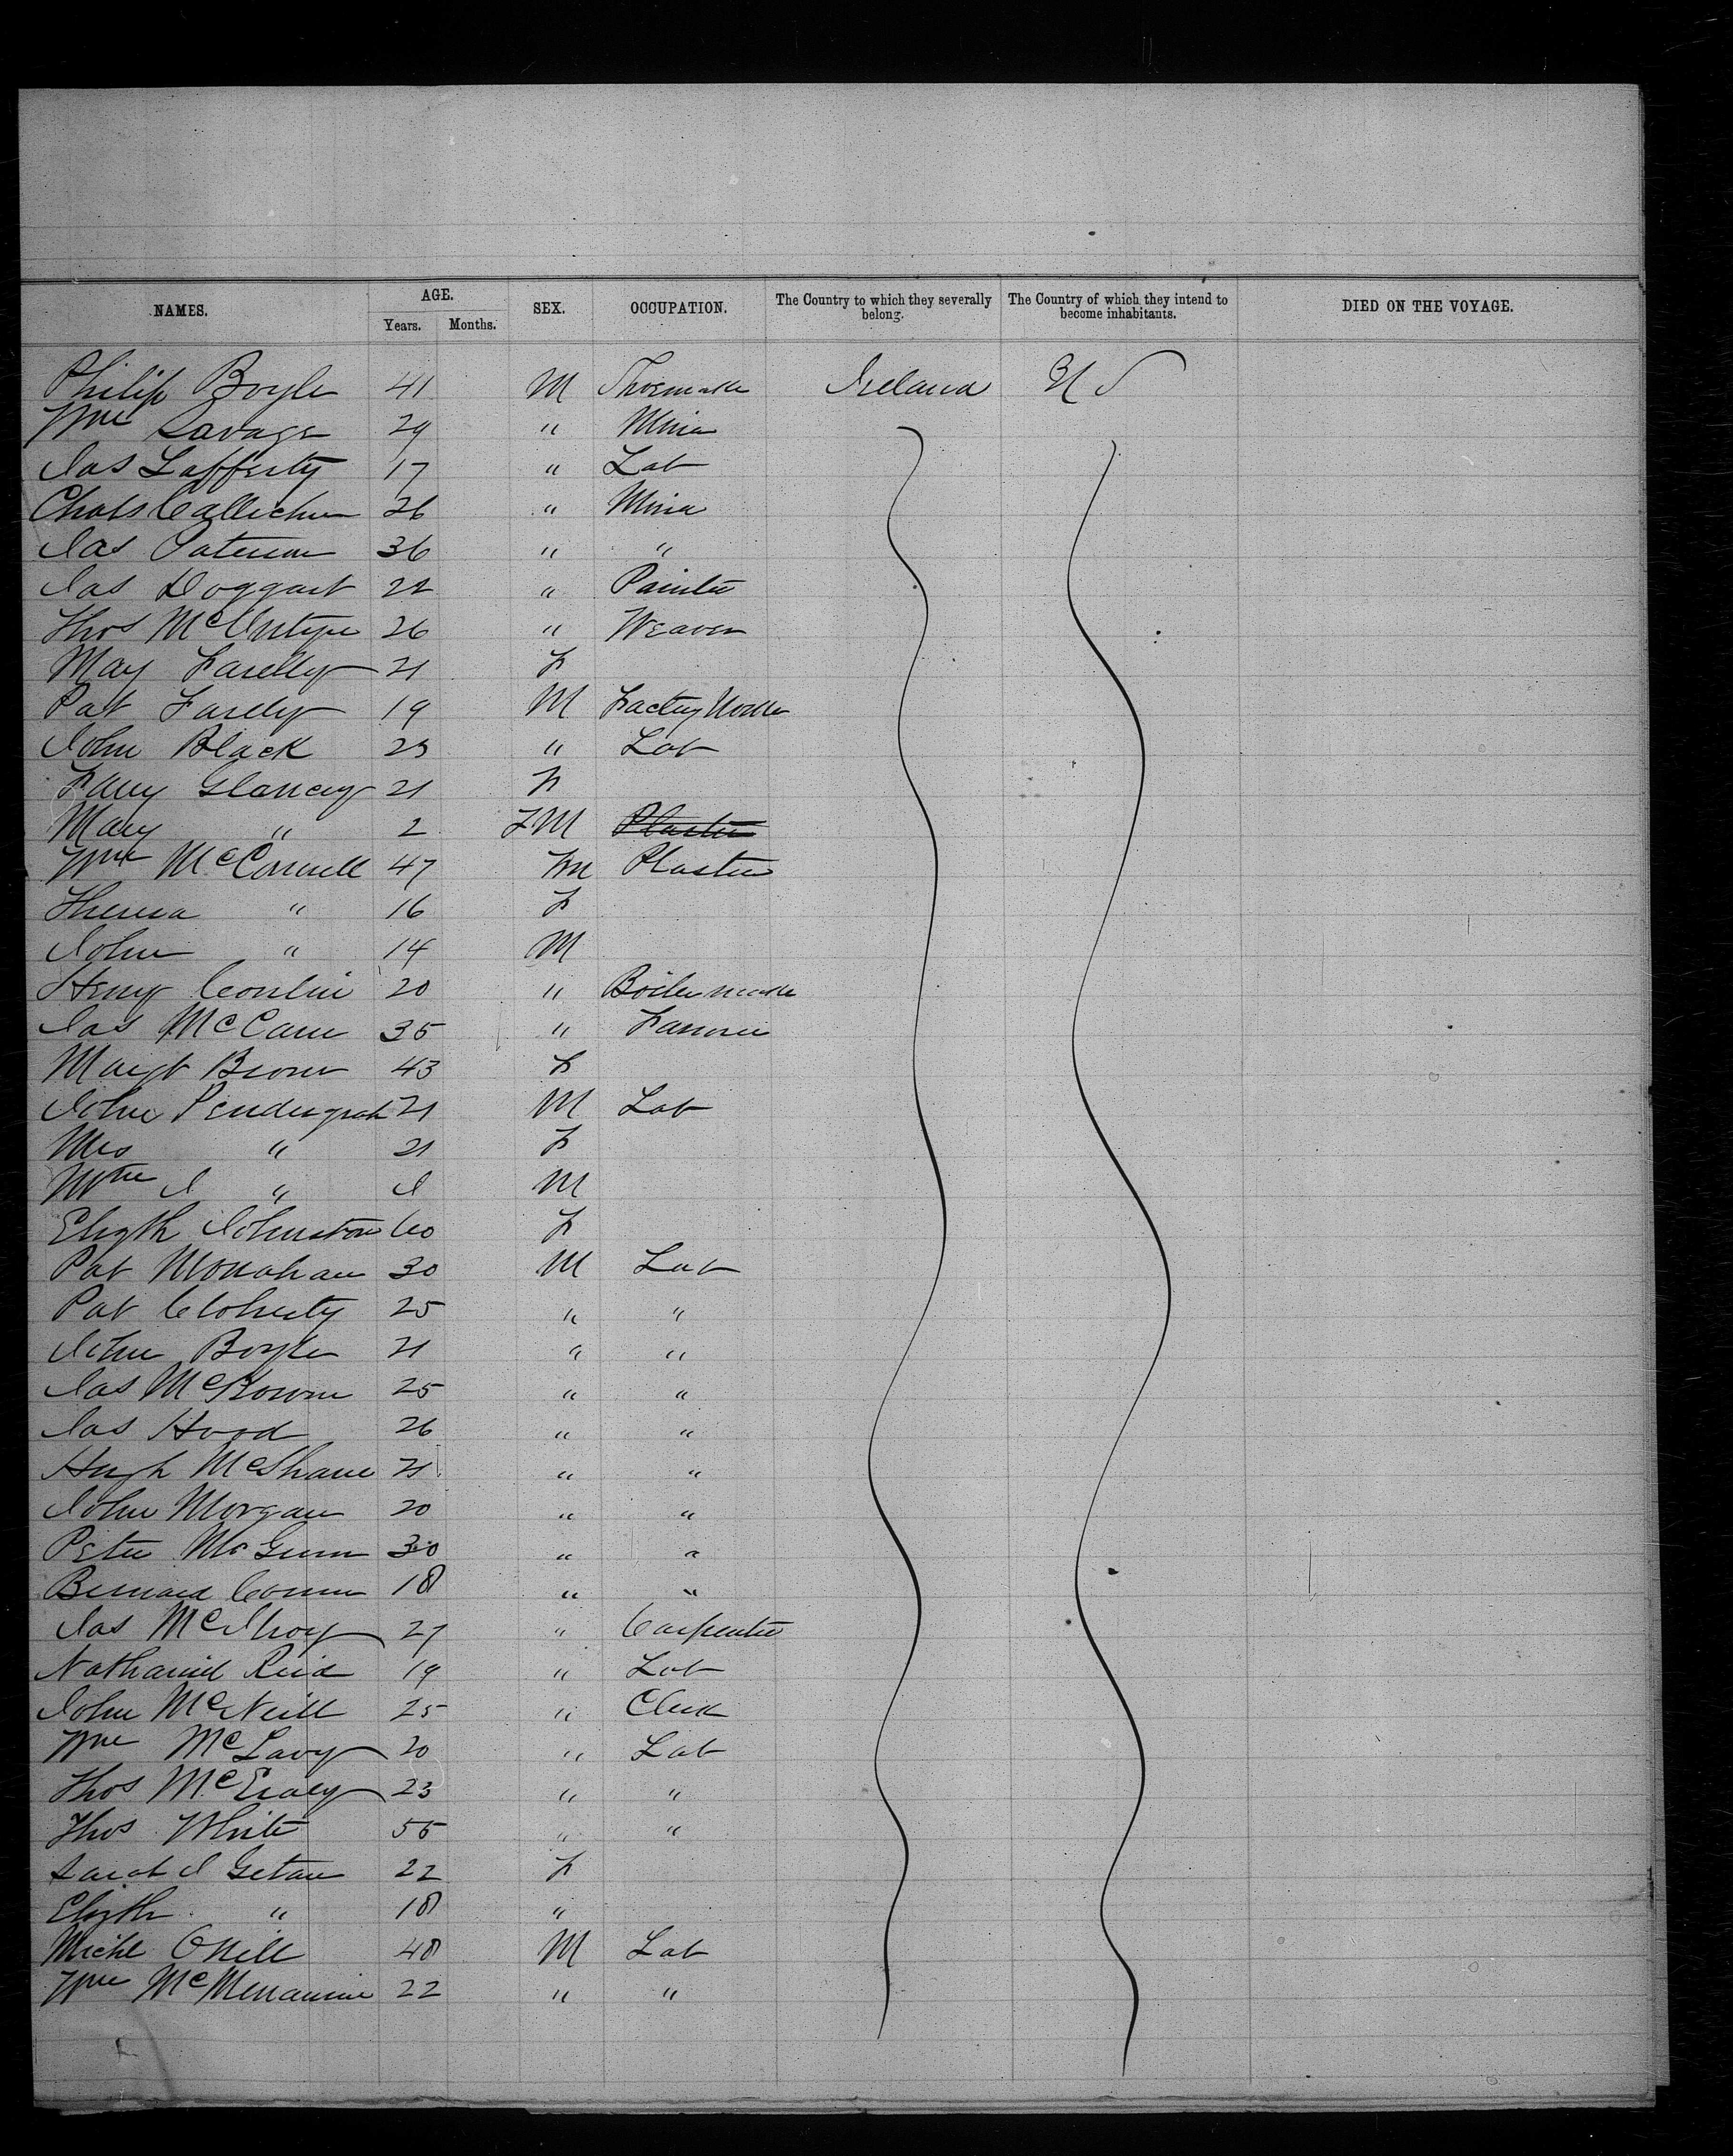 NAMES. AGE. SEX. OCCUPATION. The Country to which they severally belong. The Country of which they intend to become inhabitants. DIED ON THE VOYAGE.
Years. Months.
Philip Boyle 41 M Shoemaker Ireland U S
Wm Savage 29 " Miner
Jas Lafferty 17 " Lab
Chas 26 " Miner
Jas Paterson 36 " "
Jas Doggart 22 " Painter
Thos McIntyre 26 " Weaver
May Farelly 21 F
Pat Farelly 19 M Factory Worker
John Black 23 " Lab
Fany Glancey 21 F
Mary " 2 F M Plaster
Wm McConnell 47 M Plaster
Theresa " 16 F
John " 14 M
Henry Conlin 20 " Boilermaker
Jas McCann 35 "
Margt Brown 43 F
John Pendergrah 21 M Lab
Mrs " 21 F
Wm J " 1 M
Elizth Johnston 60 F
Pat Monahan 30 M Lab
Pat Cloherty 25 " "
John Boyle 21 " "
Jas McKowne 25 " "
Jas Hood 26 " "
Hugh McShane 21 " "
John Morgan 20 " "
Peter McGurn 30 " "
Bernard 18 " "
Jas McIlroy 27 " Carpenter
Nathaniel Reid 19 " Lab
John McNeill 25 " Clerk
Wm McLavy 20 " Lab
Thos 23 " "
Thos White 55 " "
Sarah J Getan 22 F
Elizth " 18 "
Michl ONeill 48 M Lab
Wm McMenamine 22 " "